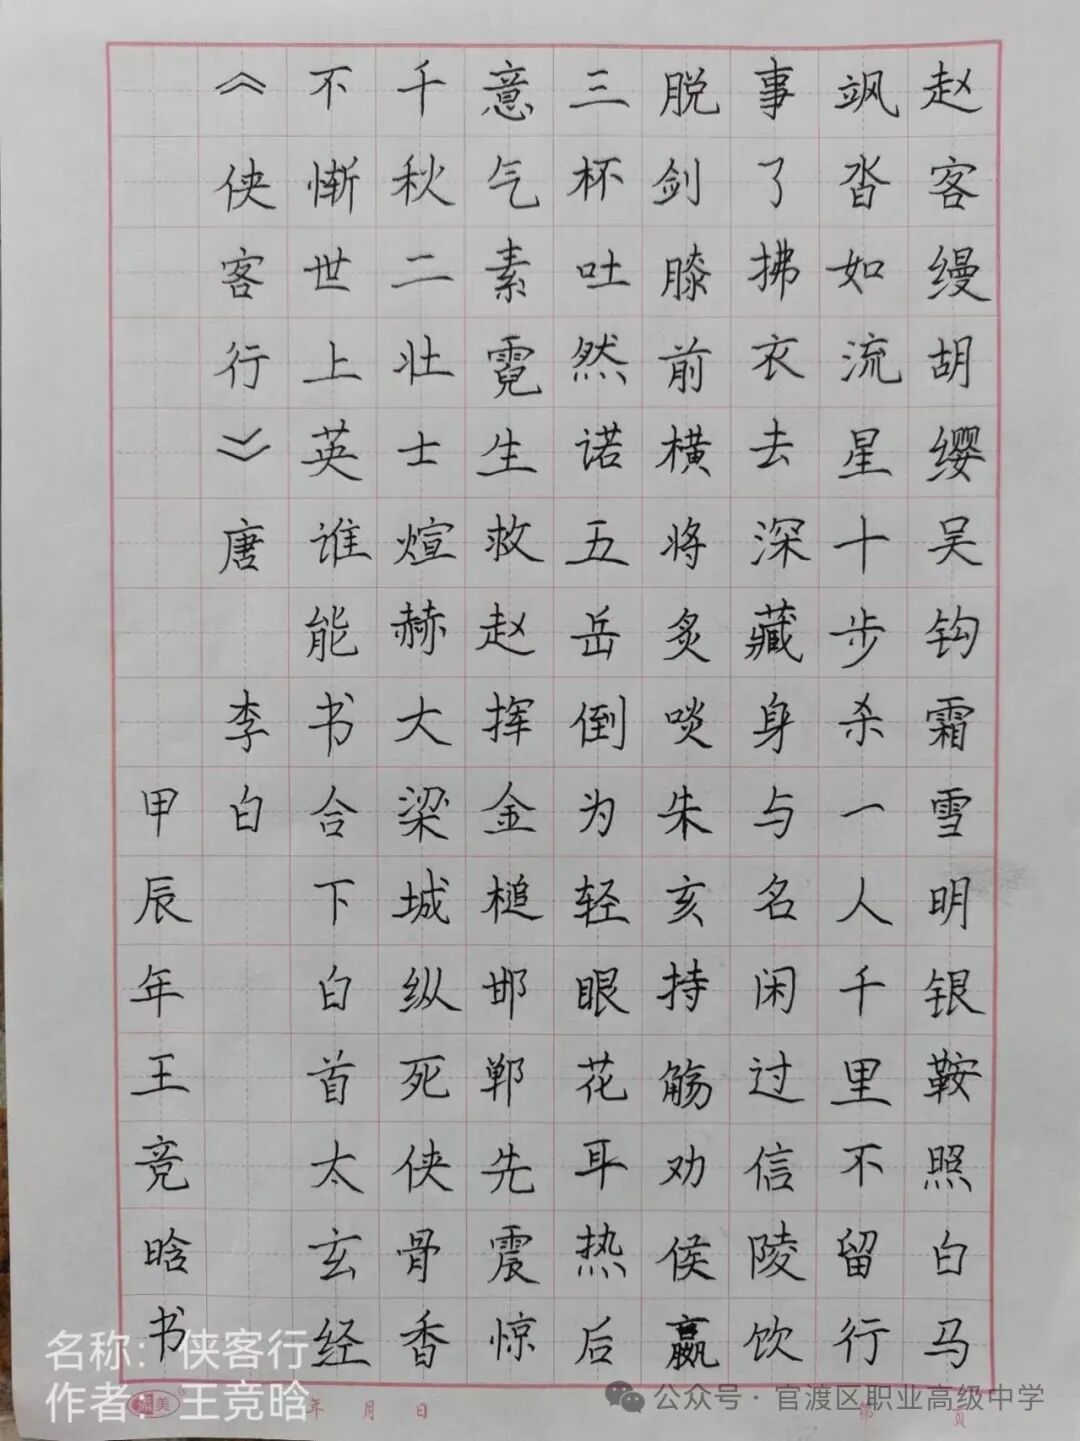 赵客缦胡缨吴钩霜雪明银鞍照白马
飒沓如流星十步杀一人千里不留行
事了拂衣去深藏身与名闲过信陵饮
脱剑膝前横将炙啖朱亥持觞劝侯嬴
三杯吐然诺五岳倒为轻眼花耳热后
意气素霓生救赵挥金槌邯郸先震惊
千秋二壮士煊赫大梁城纵死侠骨香
不惭世上英谁能书合下白首太玄经
《侠客行》唐 李白
甲辰年王竞晗书
名称：侠客行
作者：王竞晗
年 月 日
第 页
公众号·官渡区职业高级中学